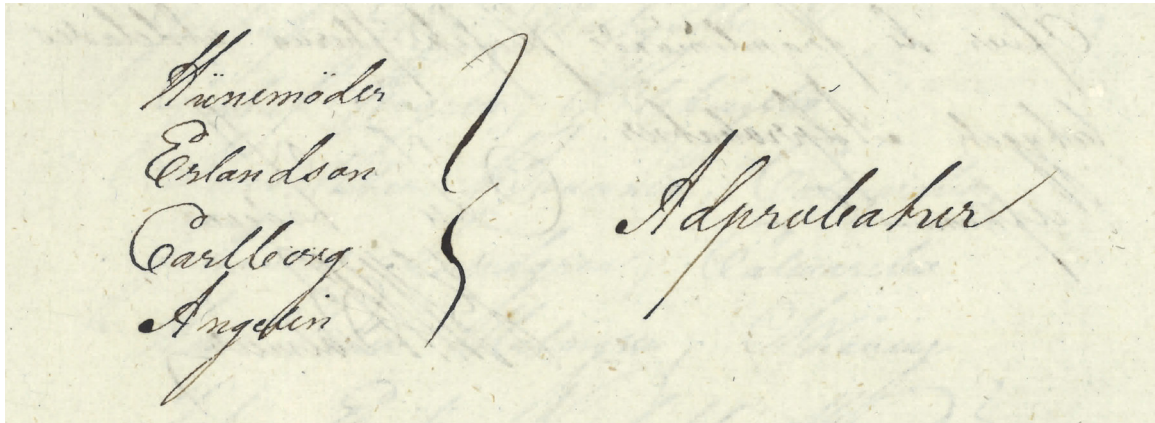 Hünemöder
Erlandson
Carlborg
Angelin
Adprobatur